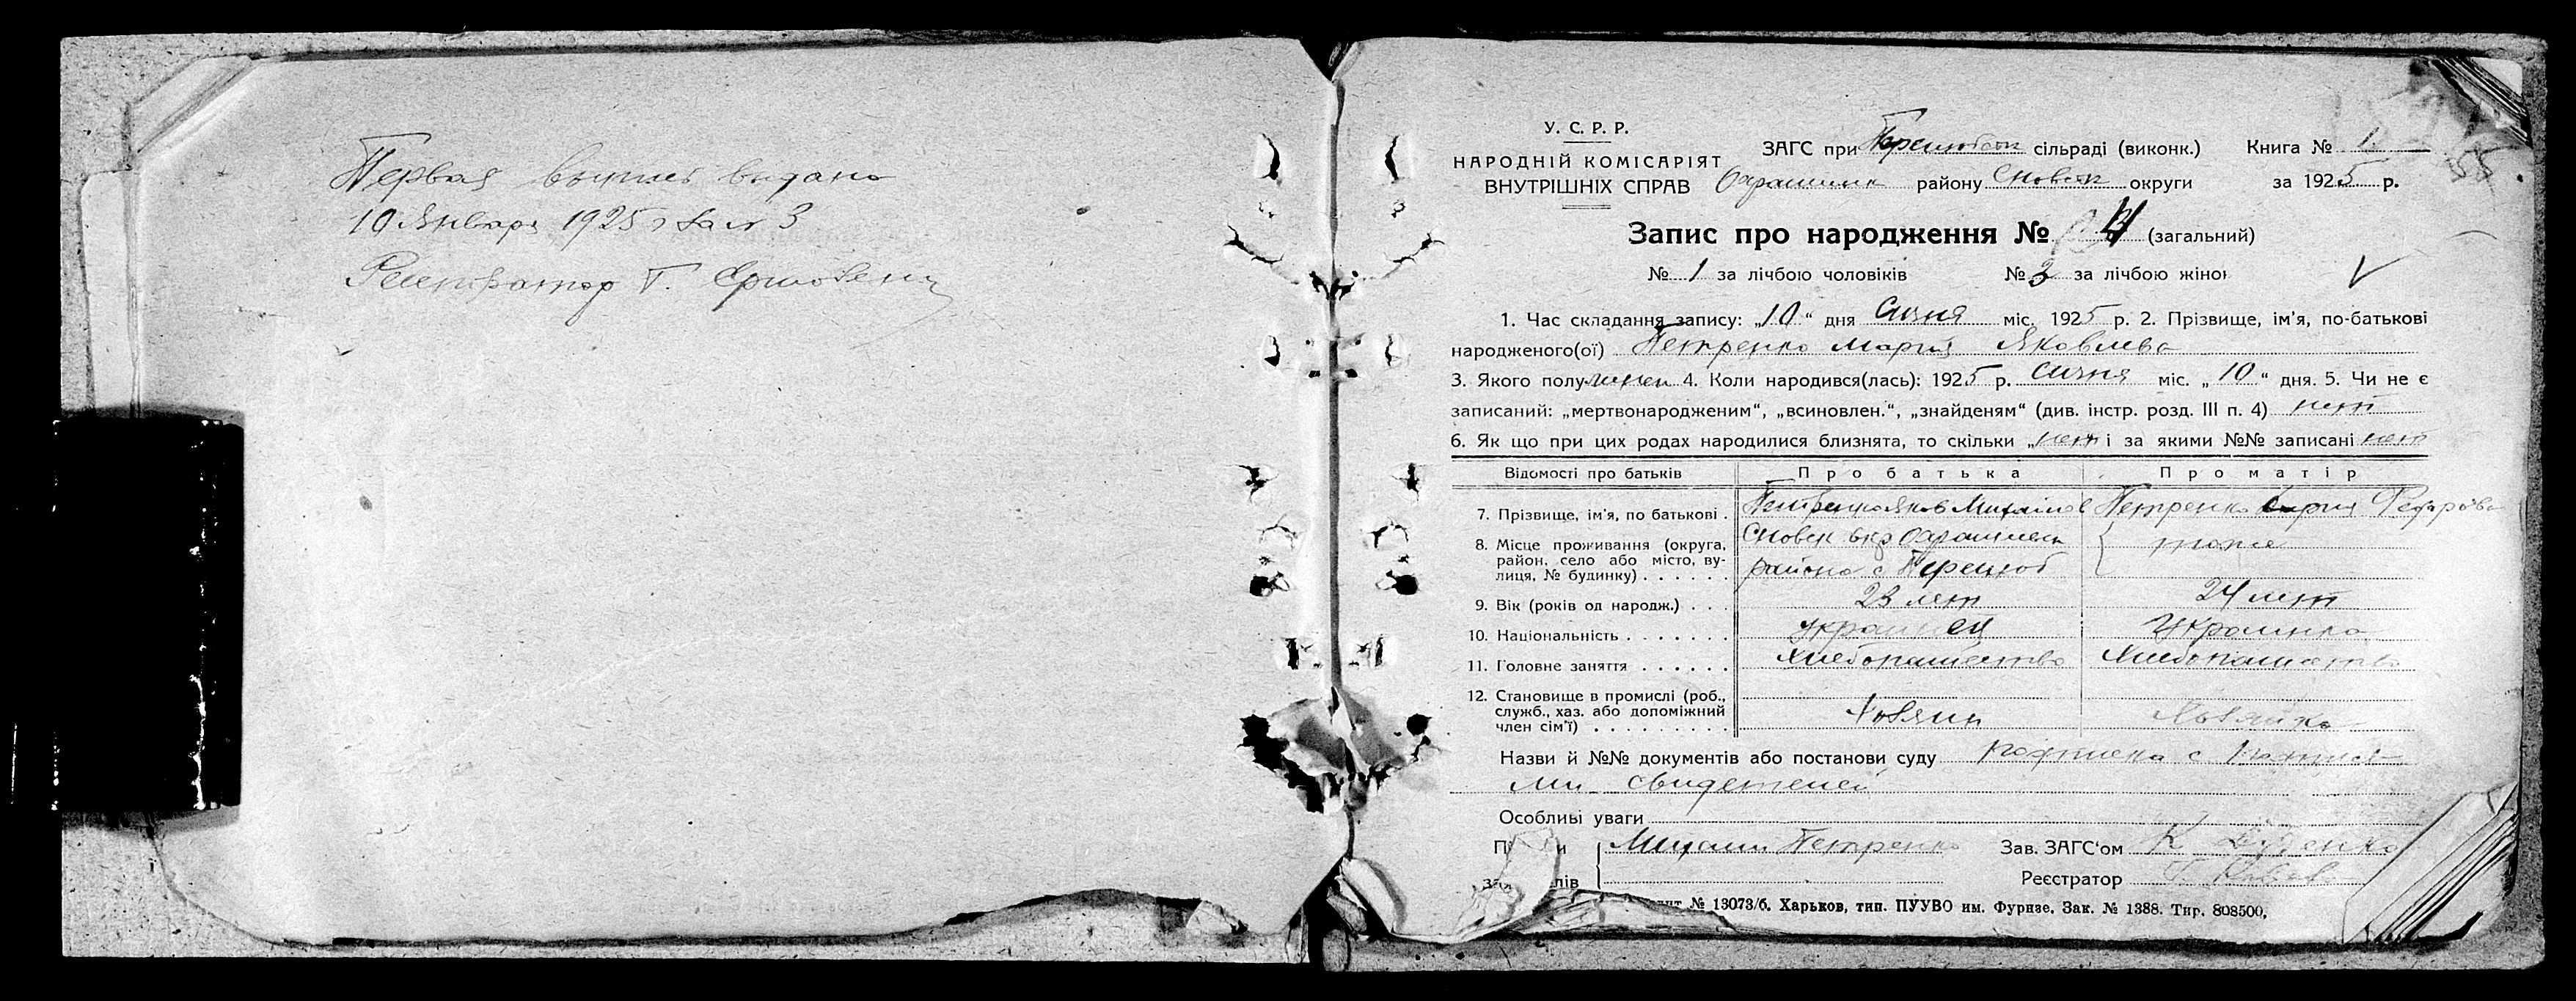 Первая выпись выдана
10 Января 1925 г за № 3
Регистратор Г.
У. С. Р. Р.
НАРОДНІЙ КОМІСАРІЯТ
ВНУТРІШНІХ СПРАВ
ЗАГС при сільраді (виконк.) Книга № 1
району Сновск округи за 1925 р.
Запис про народження № 4 (загальний)
№ 1 за лічбою чоловіків № 3 за лічбою жінок
1. Час складання запису: „10“ дня Січня міс. 1925 р. 2. Прізвище, ім'я, по-батькові
народженого(ої) Петренко Мария Яковлева
3. Якого полу 4. Коли народився(лась): 1925 р. Січня міс. „10“ дня. 5. Чи не є
записаний: „мертвонародженим“, „всиновлен.“, „знайденям“ (див. інстр. розд. III п. 4) нет
6. Як що при цих родах народилися близнята, то скільки „нет і за якими №№ записані нет
Відомості про батьків Про батька Про матір
7. Прізвище, ім'я, по батькові . Петренко Яков Михайлов Петренко Мария
8. Місце проживання (округа, район, село або місто, вулиця, № будинку) . . . . . . Сновск окр
района с Перелюб тоже
9. Вік (років од народж.) . . . 23 лет 24 лет
10. Національність . . . . . . . украинец Украинка
11. Головне заняття . . . . . . Хлебопашество Хлебопашество
12. Становище в промислі (роб., служб., хаз. або допоміжний член сім'ї) . . . . . . . . . Хозяин Хозяйка
Назви й №№ документів або постанови суду подписка с подпися-
ми свидетелей
Особливі уваги
Михаил Петренко Зав. ЗАГС'ом К
Реєстратор Г.
№ 13073/б. Харьков, тип. ПУУВО им. Фрунзе. Зак. № 1388. Тир. 808500.